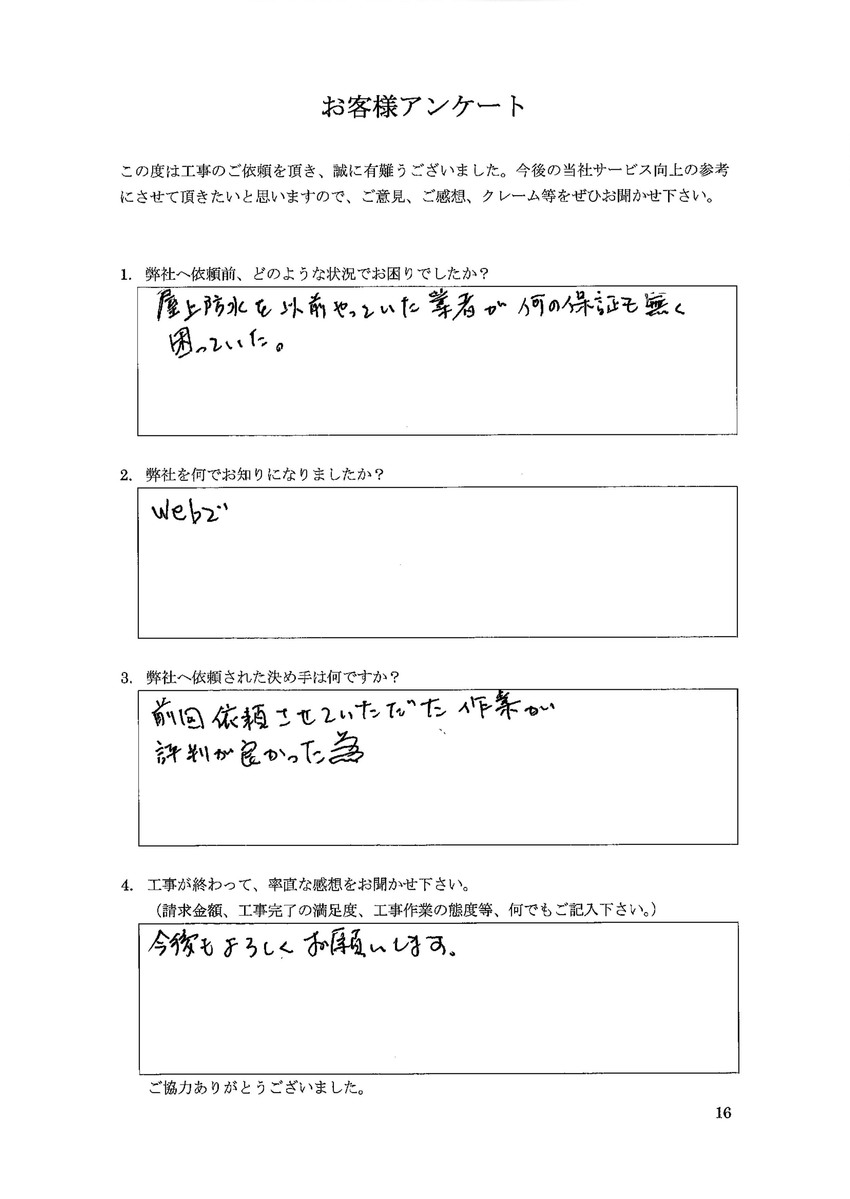 お客様アンケート
この度は工事のご依頼を頂き、誠に有難うございました。今後の当社サービス向上の参考
にさせて頂きたいと思いますので、ご意見、ご感想、クレーム等をぜひお聞かせ下さい。
1. 弊社へ依頼前、どのような状況でお困りでしたか？
屋上防水を以前やっていた業者が何の保証も無く
困っていた。
2. 弊社を何でお知りになりましたか？
Webで
3. 弊社へ依頼された決め手は何ですか？
前回依頼させていただいた作業が
評判が良かった為
4. 工事が終わって、率直な感想をお聞かせ下さい。
（請求金額、工事完了の満足度、工事作業の態度等、何でもご記入下さい。）
今後もよろしくお願いします。
ご協力ありがとうございました。
16